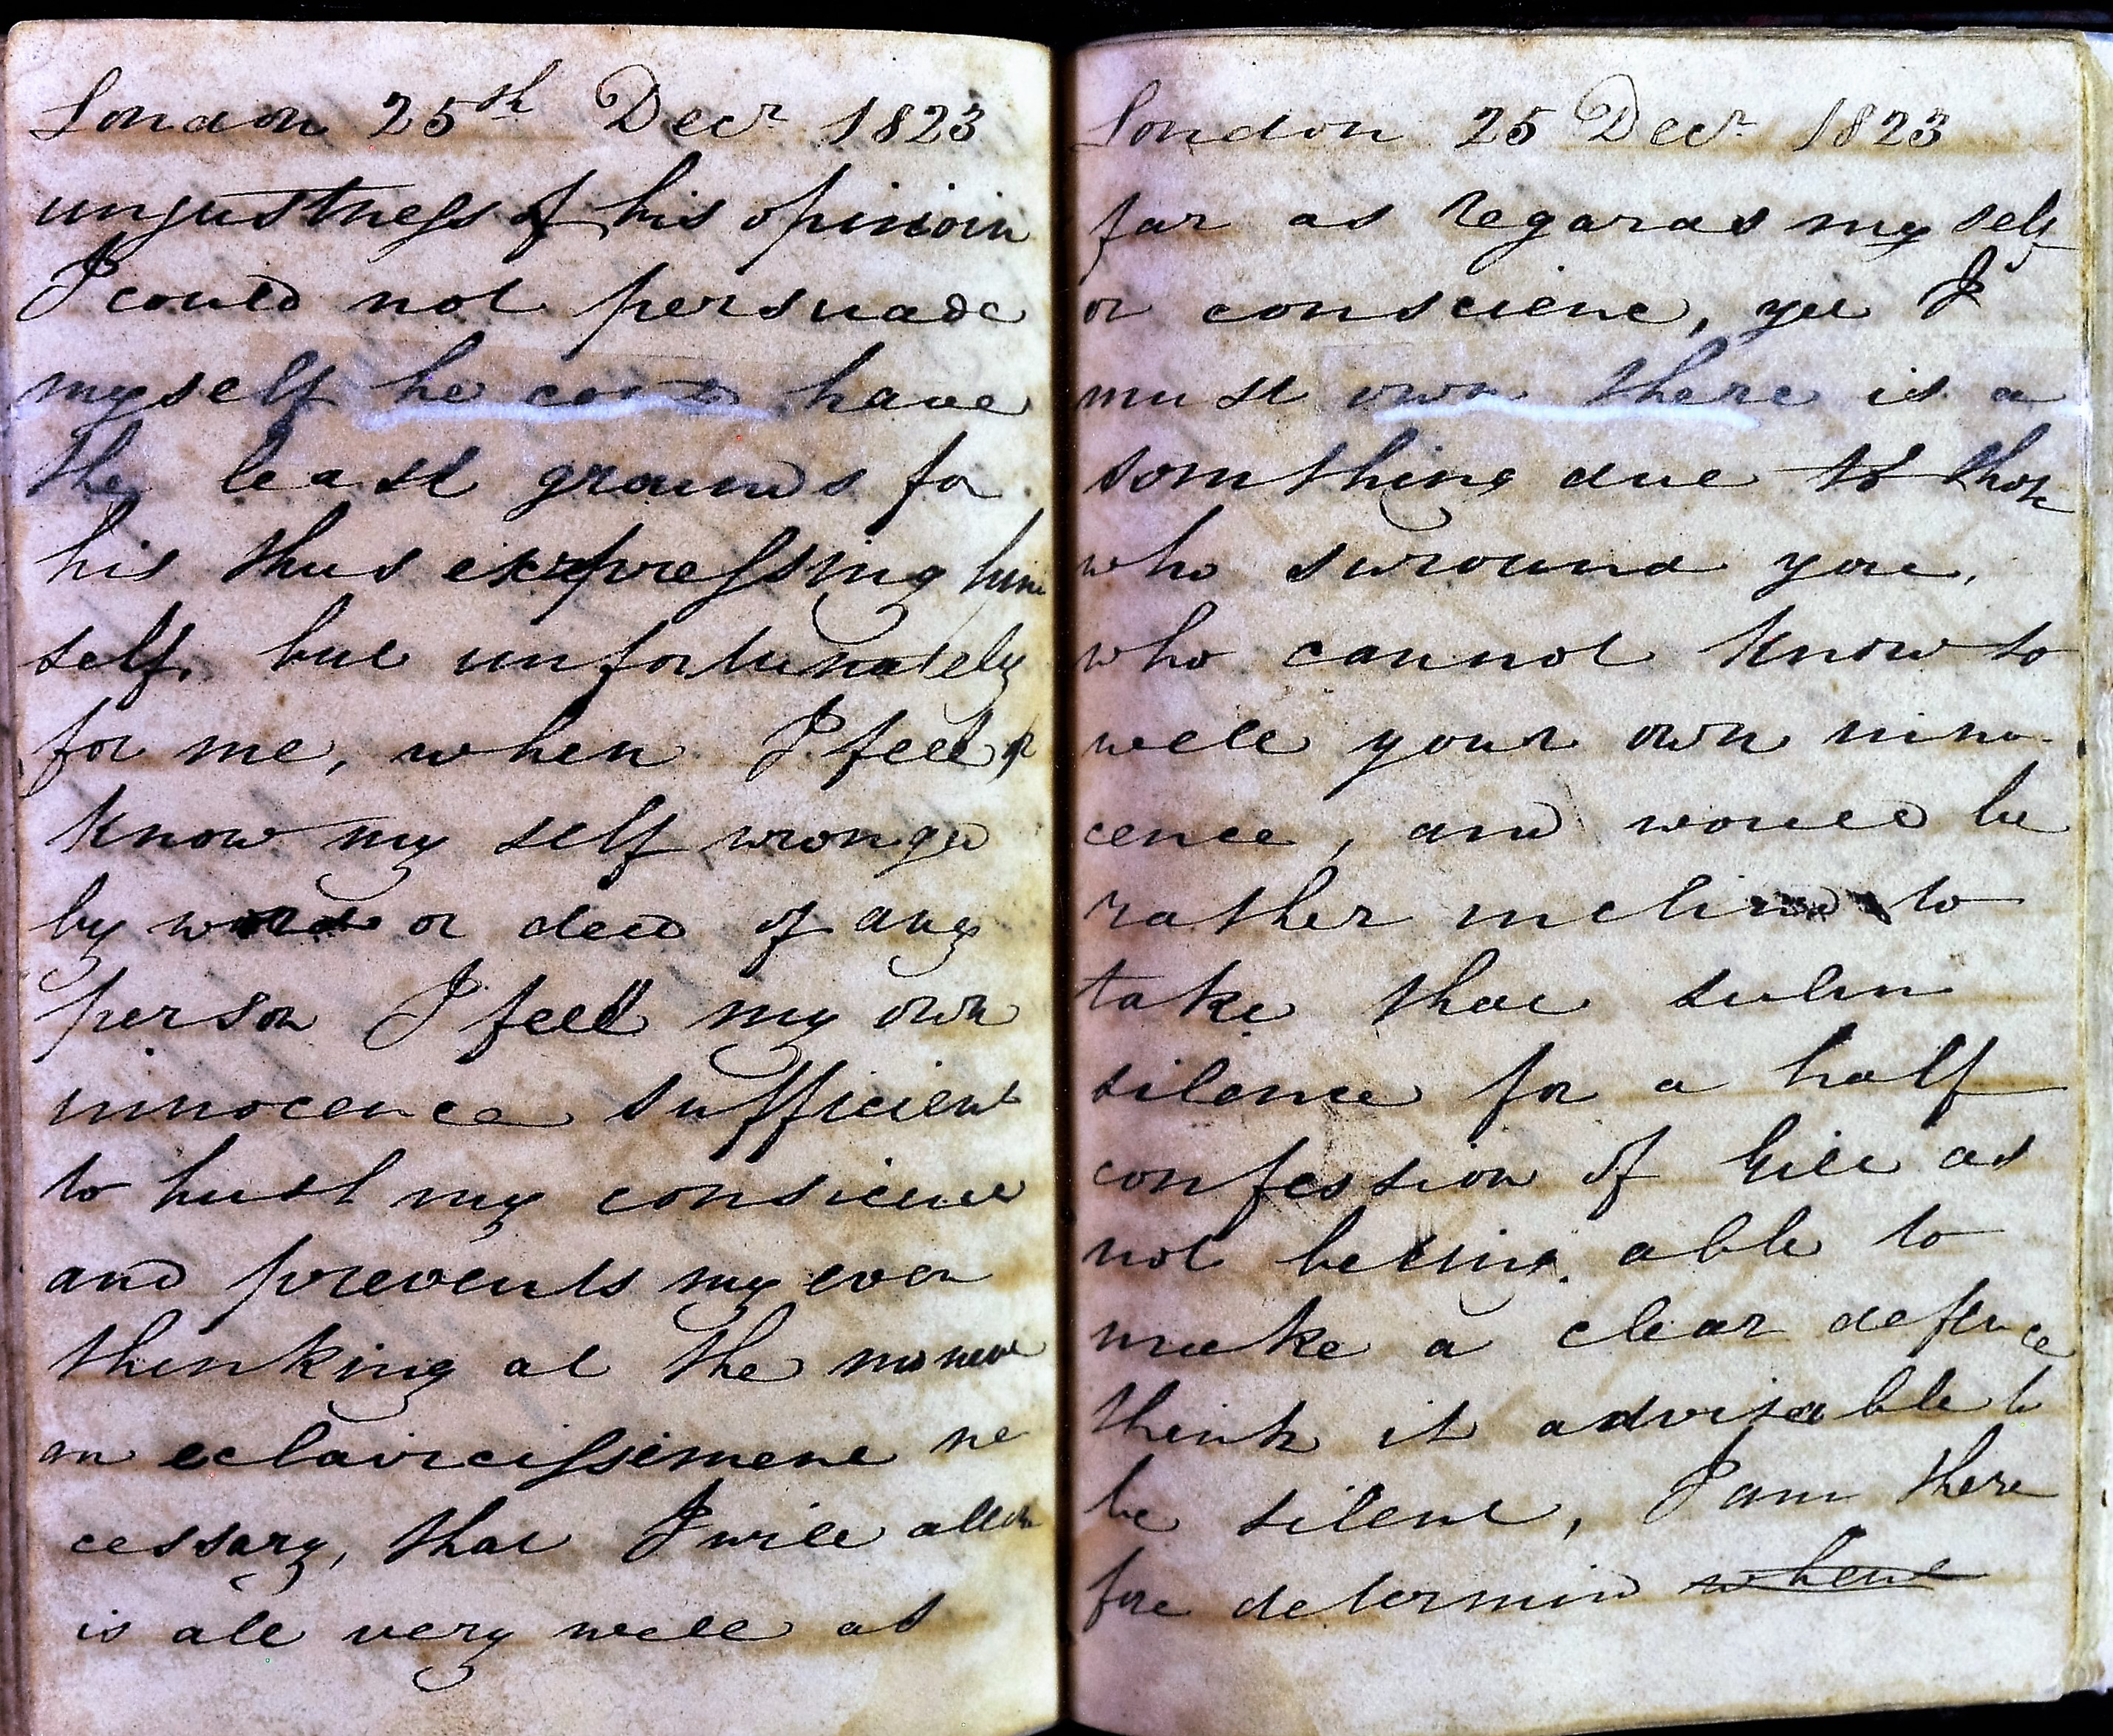 London 25th Decr 1823
unjustness of his opinion
I could not persuade
myself he could have
the least grounds for
his thus expressing him
self, but unfortunately
for me, when I feel or
know my self wronged
by word or deed of any
person I feel my own
innocence sufficient
to hush my conscience
and prevents my ever
thinking at the moment
an eclaircissement ne
cessary, that I will allow
is all very well as
London 25 Decr 1823
far as regards my self
or conscienc, yet I
must own there is a
somthing due to those
who suround you,
who cannot know so
well your own inno-
cence, and would be
rather inclined to
take that sulen
silence for a half
confession of Guilt as
not being able to
make a clear defence
think it advisable to
be silent, I am there
fore determind